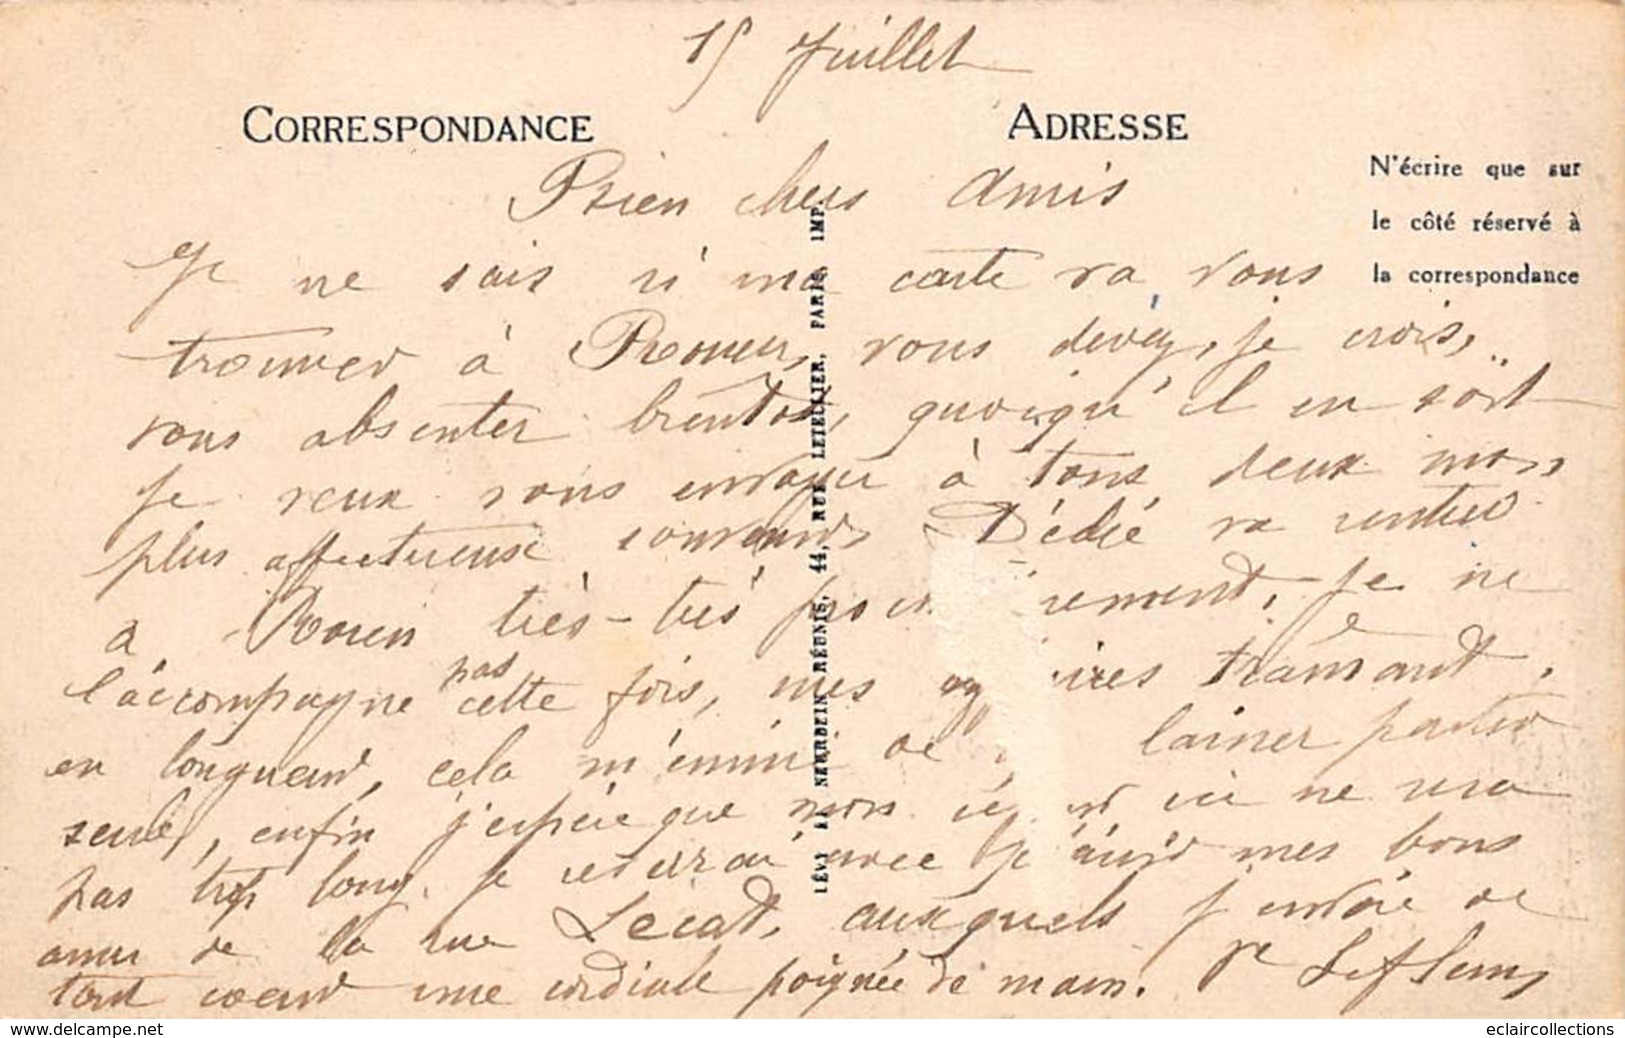 15 Juillet
CORRESPONDANCE
ADRESSE
N'écrire que sur
le côté réservé à
la correspondance
Bien chers Amis
Je ne sais si ma carte va vous
trouver à Rouen, vous devez, je crois,
vous absenter bientôt, quoiqu'il en soit
je veux vous envoyer à tous deux mon
plus affectueux souvenir. Dédé va rentrer
à Rouen très-très, je ne
l'accompagne pas cette fois, mes traînant
en longueur, cela m'ennuie de laisser partir
seule, enfin j'espère que mon ici ne sera
pas trop long. Je reverrai avec mes bons
amis de la rue Lecat, auxquels j'envoie de
tout coeur une cordiale poignée de main.
LÉVY & NEURDEIN RÉUNIS, 44, RUE LETELLIER, PARIS, IMP.
delcampe.net
eclaircollections